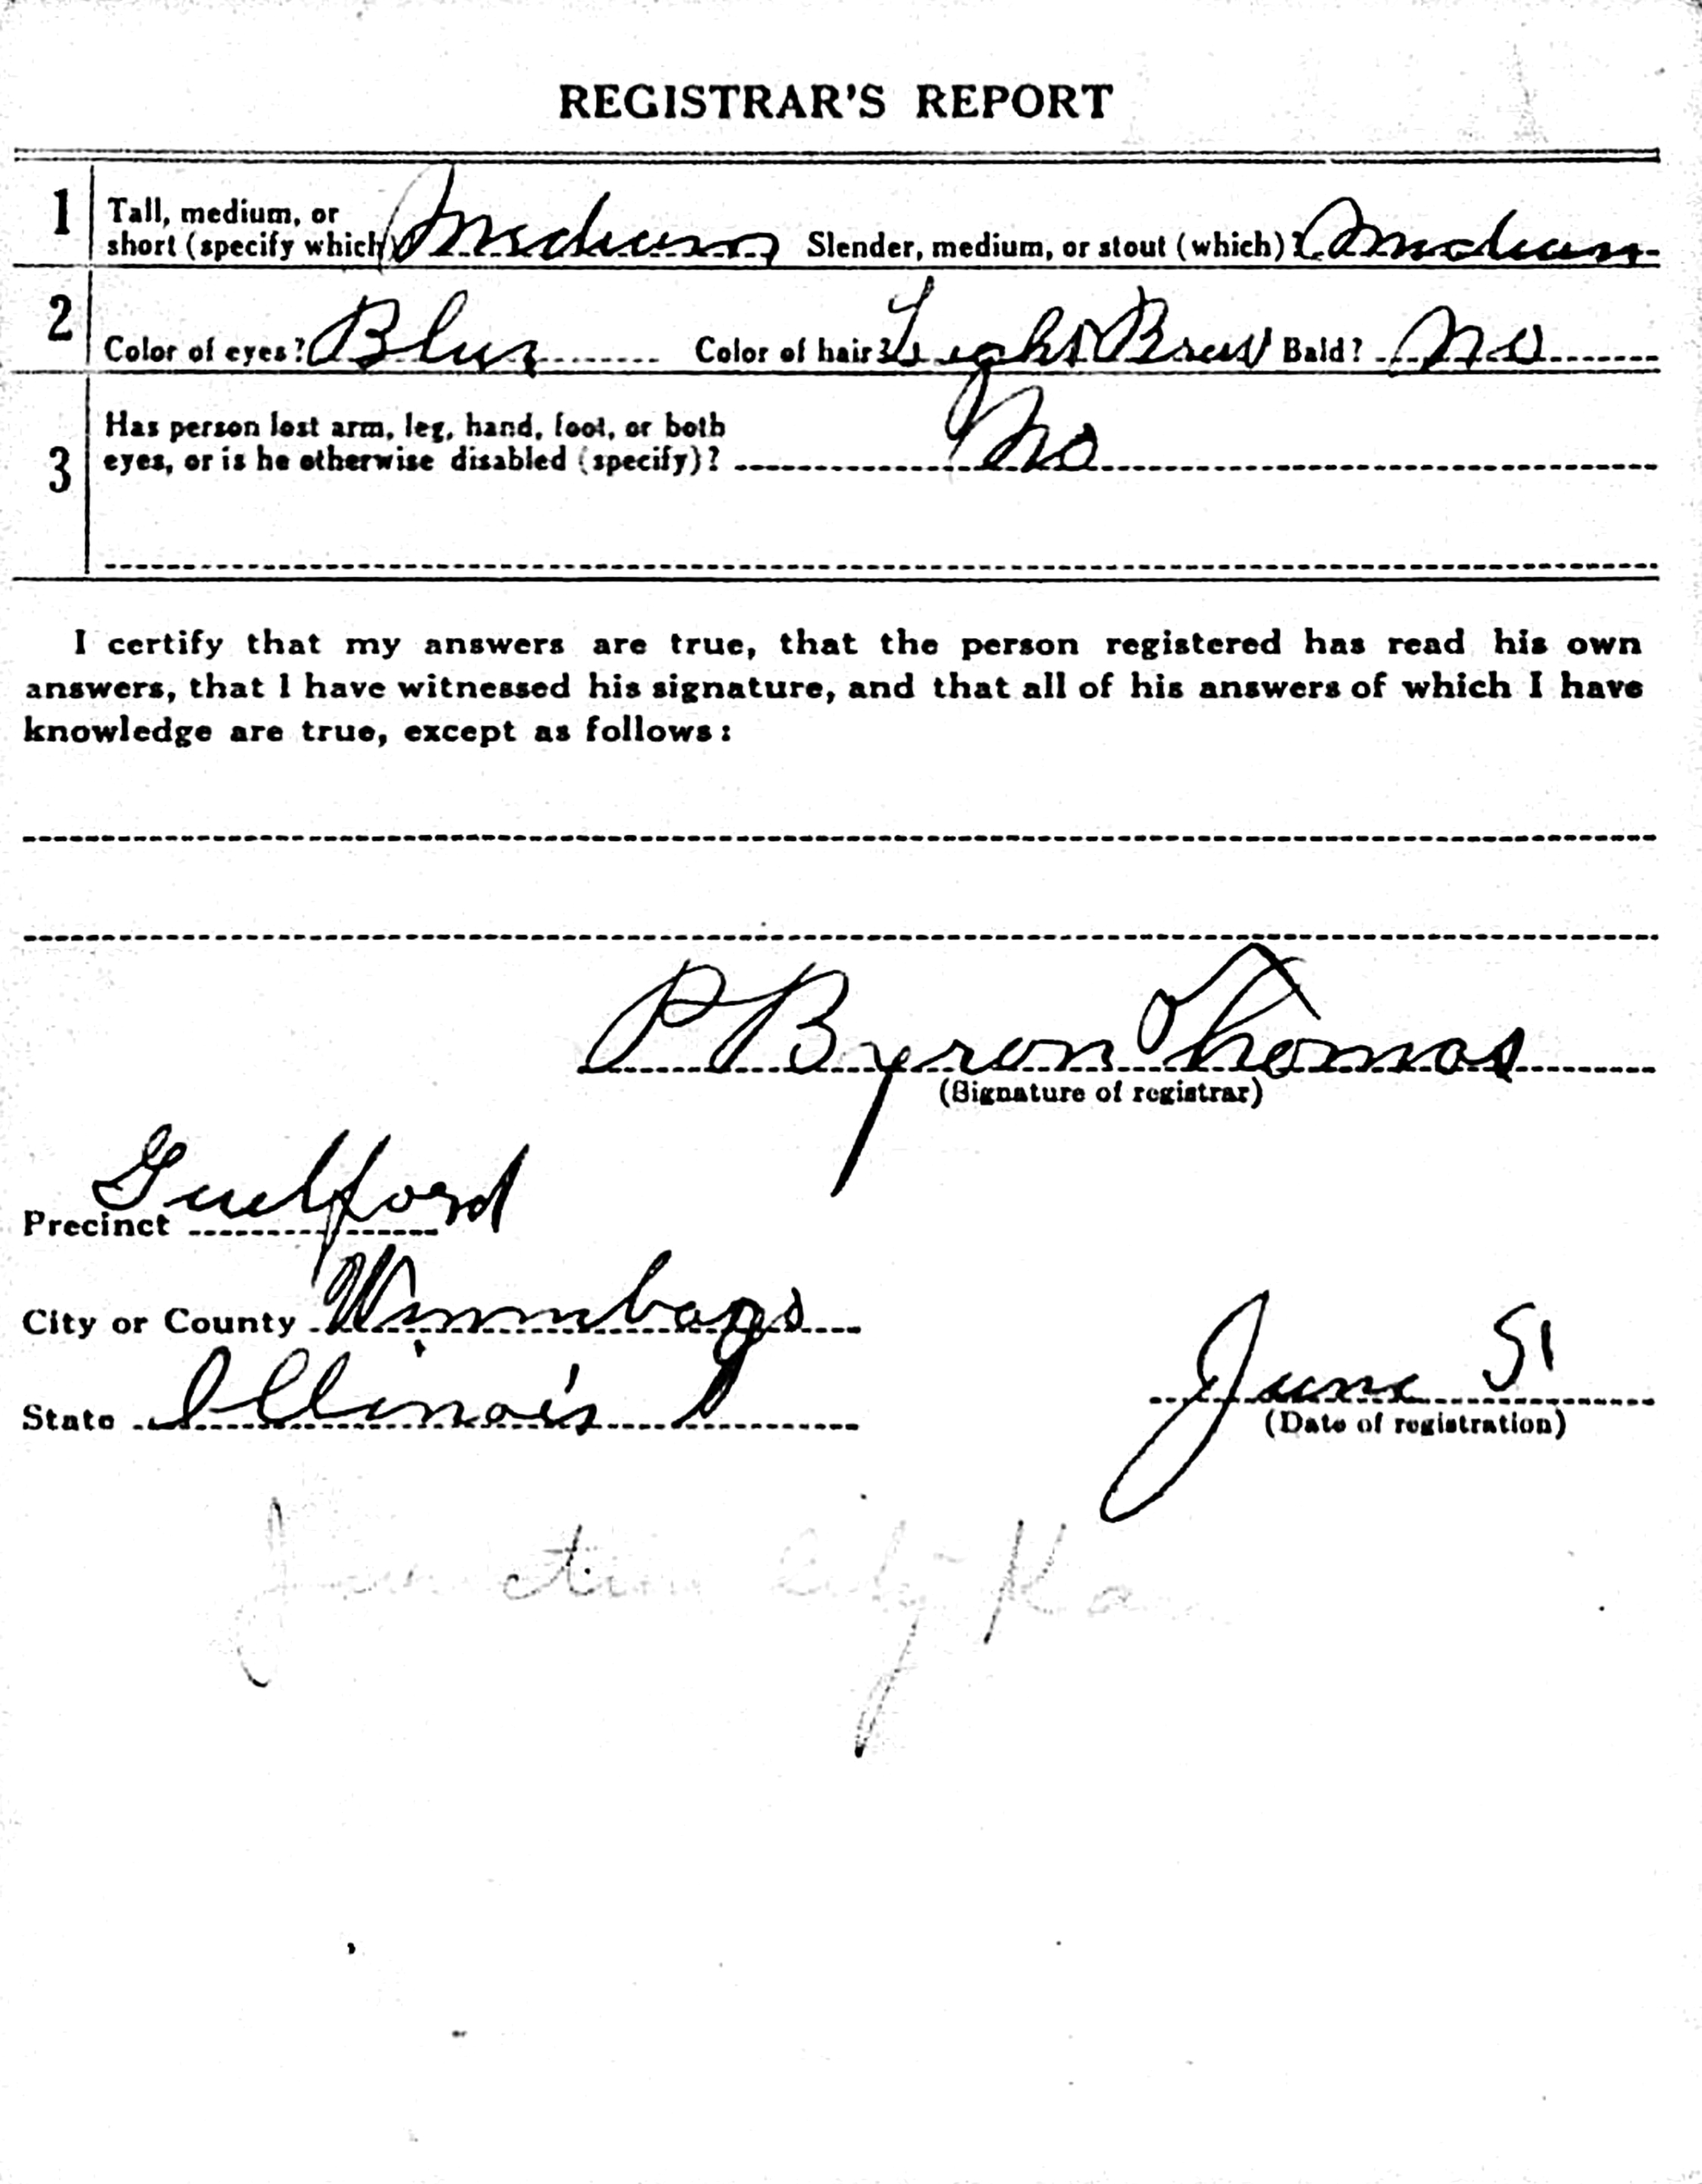 REGISTRAR'S REPORT
1 Tall, medium, or short (specify which)? Medium Slender, medium, or stout (which)? Medium
2 Color of eyes? Blue Color of hair? Light Brow Bald? No
3 Has person lost arm, leg, hand, foot, or both
eyes, or is he otherwise disabled (specify)? No
I certify that my answers are true, that the person registered has read his own
answers, that I have witnessed his signature, and that all of his answers of which I have
knowledge are true, except as follows:
P Byron Thomas
(Signature of registrar)
Precinct Guilford
City or County Winnebago
State Illinois
June 5
(Date of registration)
Junction City Ka